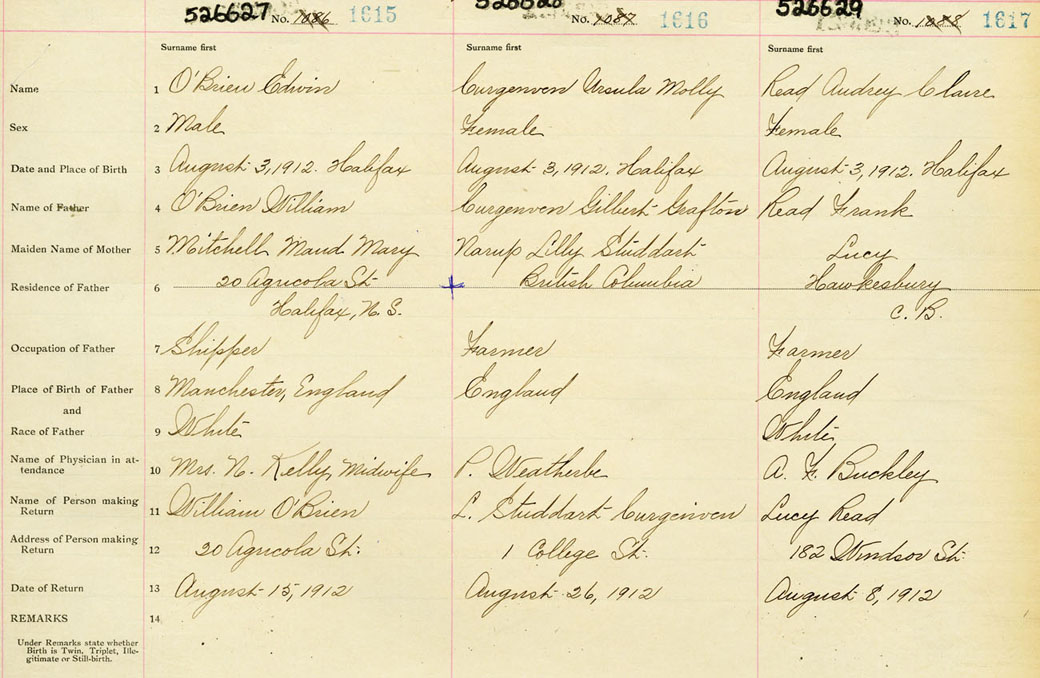 526627 No. 1086 1615 526628 No. 1087 1616 526629 No. 1088 1617
Surname first Surname first Surname first
Name 1 O'Brien Edwin Curgenven Ursula Molly Read Audrey Claire
Sex 2 Male Female Female
Date and Place of Birth 3 August 3, 1912. Halifax August 3, 1912. Halifax August 3, 1912. Halifax
Name of Father 4 O'Brien William Curgenven Gilbert Grafton Read Frank
Maiden Name of Mother 5 Mitchell Maud Mary Narup Lilly Studdart Lucy
Residence of Father 6 20 Agricola St. British Columbia Hawkesbury
Halifax, N. S. C. B.
Occupation of Father 7 Shipper Farmer Farmer
Place of Birth of Father 8 Manchester, England England England
and
Race of Father 9 White White
Name of Physician in at-
tendance 10 Mrs. N. Kelly, Midwife P. Weatherbe A. F. Buckley
Name of Person making
Return 11 William O'Brien L. Studdart Curgenven Lucy Read
Address of Person making
Return 12 20 Agricola St. 1 College St. 182 Windsor St.
Date of Return 13 August 15, 1912 August 26, 1912 August 8, 1912
REMARKS 14
Under Remarks state whether
Birth is Twin, Triplet, Ille-
gitimate or Still-birth.